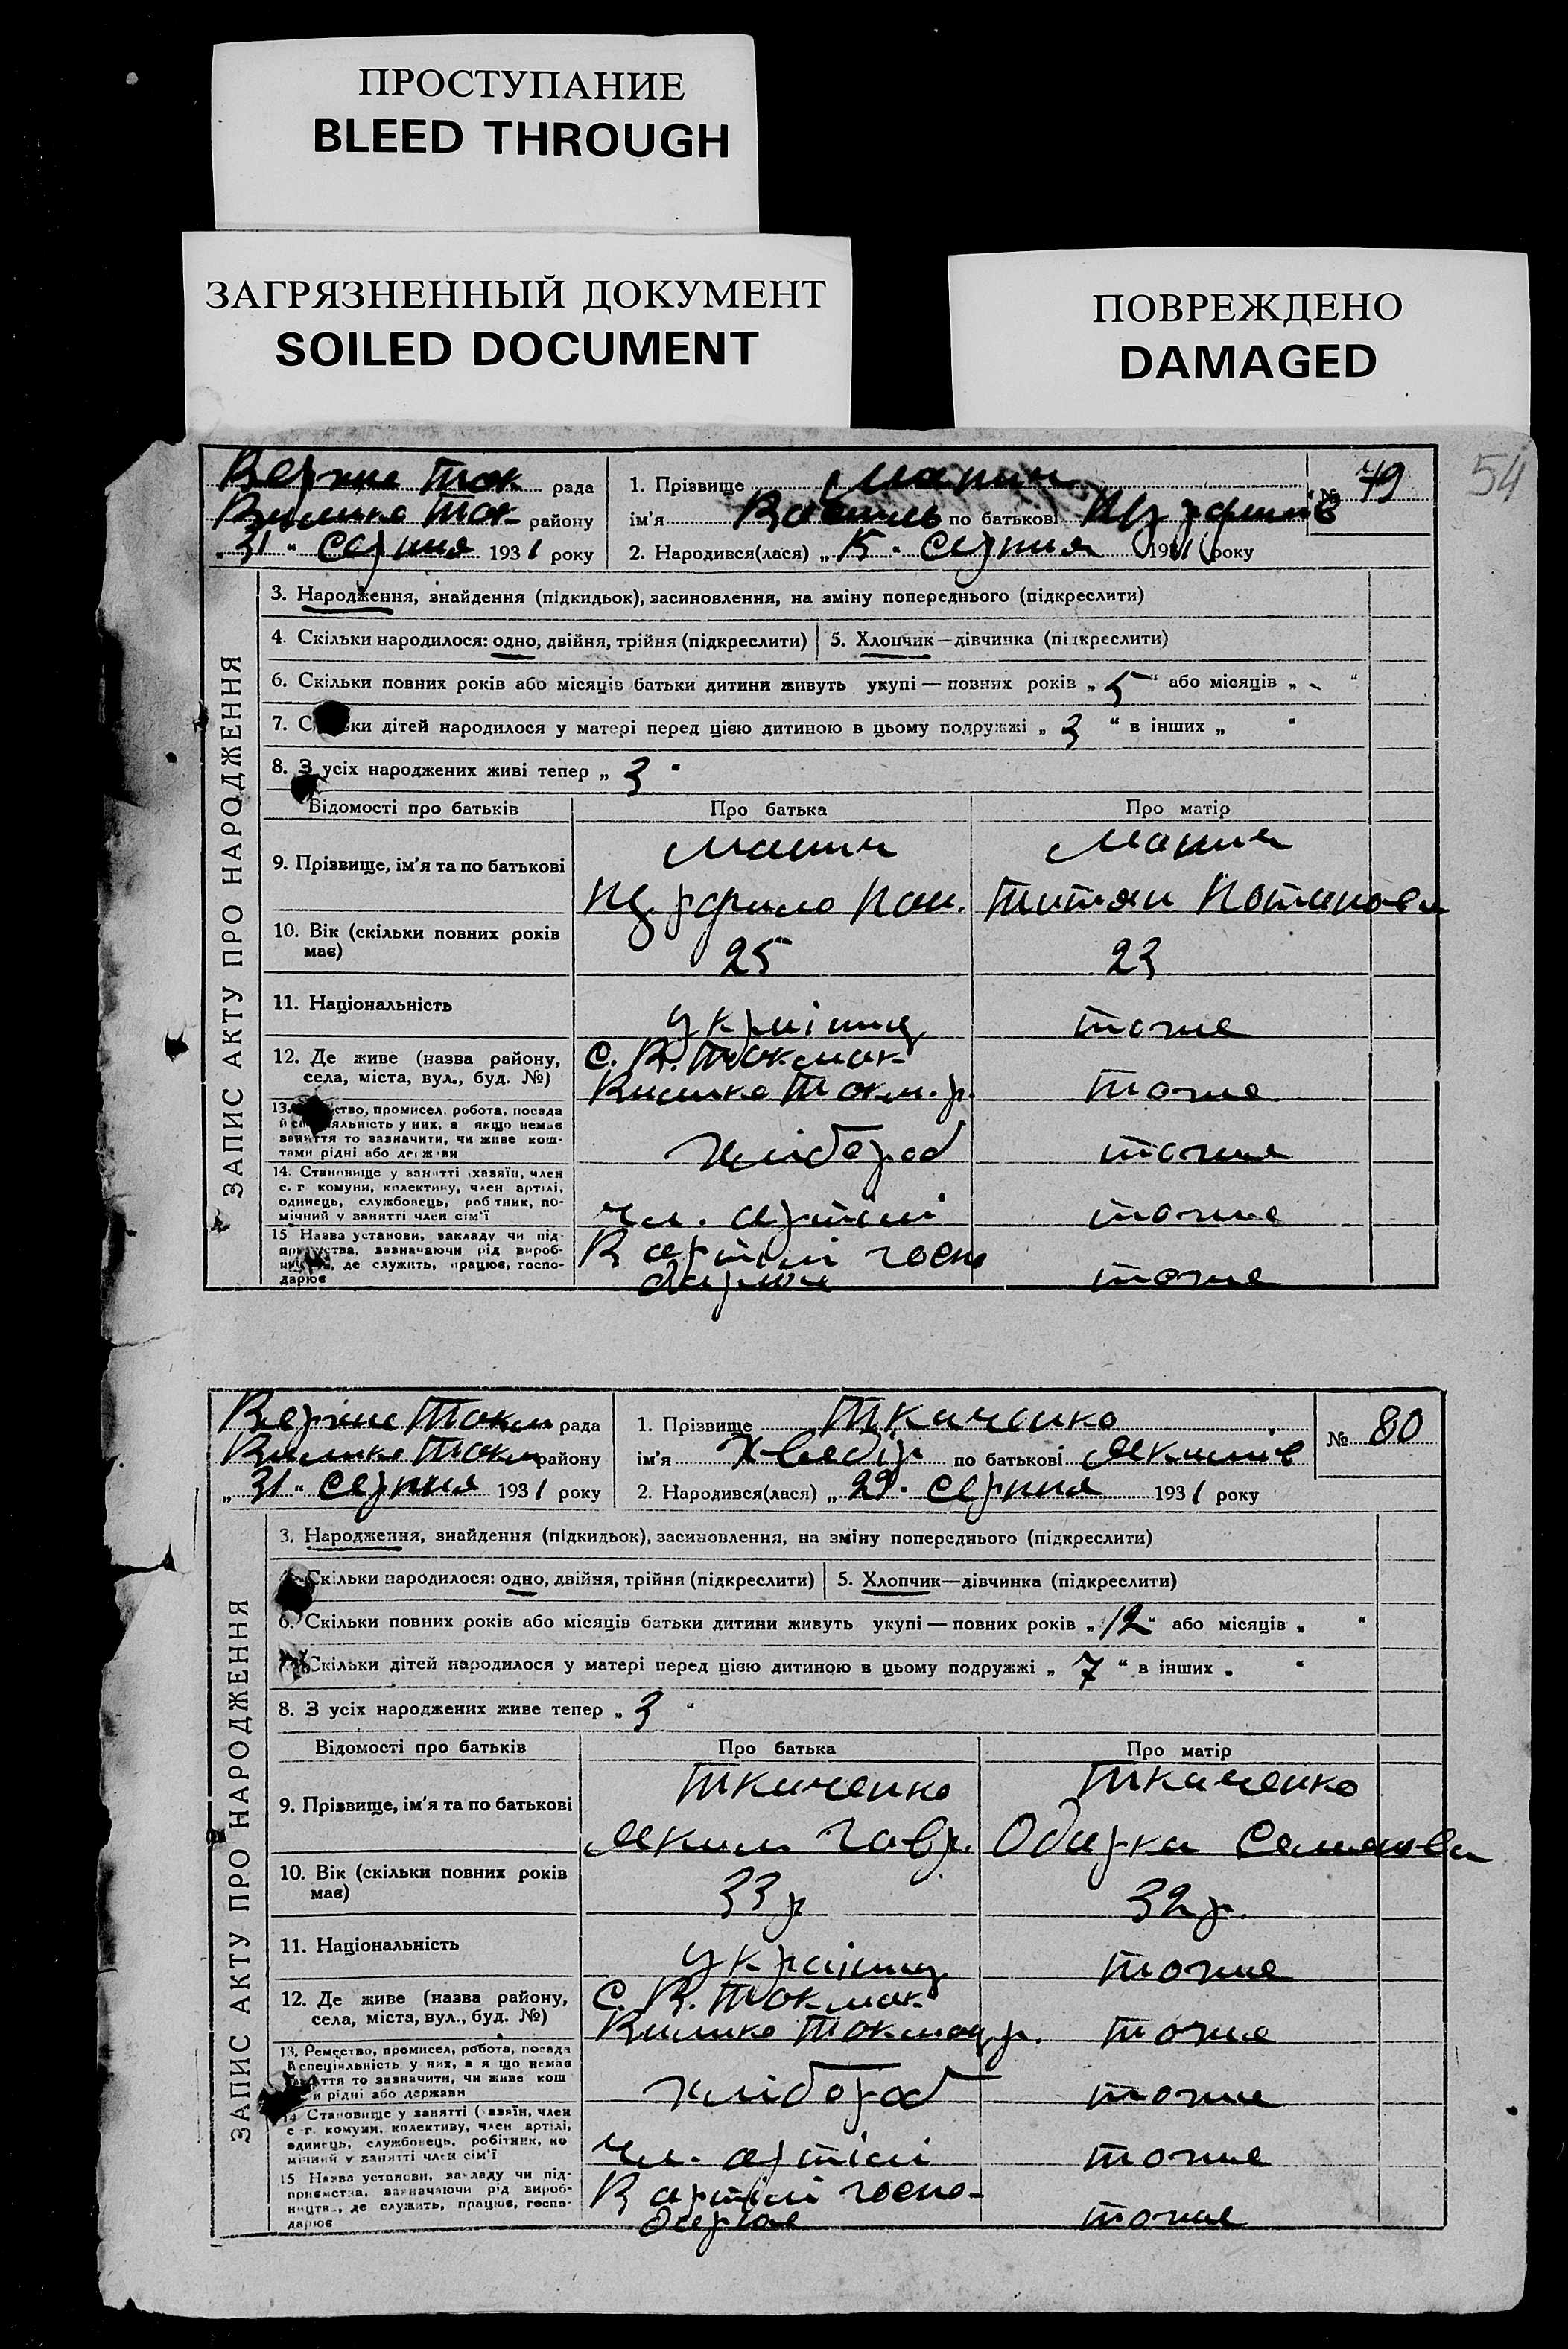 ПРОСТУПАНИЕ
BLEED THROUGH
ЗАГРЯЗНЕННЫЙ ДОКУМЕНТ
SOILED DOCUMENT
ПОВРЕЖДЕНО
DAMAGED
54
Верхнє Ток рада
Велико Ток району
„31“ Серпня 1931 року
1. Прізвище
ім'я Василь по батькові
№ 79
2. Народився(лася) „15“ Серпня 1931 року
ЗАПИС АКТУ ПРО НАРОДЖЕННЯ
3. Народження, знайдення (підкидьок), засиновлення, на зміну попереднього (підкреслити)
4. Скільки народилося: одно, двійня, трійня (підкреслити) 5. Хлопчик—дівчинка (підкреслити)
6. Скільки повних років або місяців батьки дитини живуть укупі — повних років „5“ або місяців „-“
7. Скільки дітей народилося у матері перед цією дитиною в цьому подружжі „3“ в інших „ “
8. З усіх народжених живі тепер „3“
Відомості про батьків Про батька Про матір
9. Прізвище, ім'я та по батькові
10. Вік (скільки повних років має) 25 23
11. Національність українец тоже
12. Де живе (назва району, села, міста, вул., буд. №) С. В. Токмак Велико Токм. р. тоже
13. Ремество, промисел, робота, посада й спеціяльність у них, а якщо немає заняття то зазначити, чи живе коштами рідні або держави Хлібороб тоже
14. Становище у занятті (хазяїн, член с. г. комуни, колективу, член артілі, одинець, службовець, робітник, помічний у занятті член сім'ї чл. артілі тоже
15 Назва установи, закладу чи підприємства, зазначаючи рід виробництва, де служить, працює, господарює В артілі госпо тоже
Верхнє Токм рада
Велико Токм району
„31“ Серпня 1931 року
1. Прізвище Ткаченко
ім'я Хведір по батькові Якимів
№ 80
2. Народився(лася) „29“ Серпня 1931 року
ЗАПИС АКТУ ПРО НАРОДЖЕННЯ
3. Народження, знайдення (підкидьок), засиновлення, на зміну попереднього (підкреслити)
Скільки народилося: одно, двійня, трійня (підкреслити) 5. Хлопчик—дівчинка (підкреслити)
6. Скільки повних років або місяців батьки дитини живуть укупі — повних років „12“ або місяців „ “
7. Скільки дітей народилося у матері перед цією дитиною в цьому подружжі „7“ в інших „ “
8. З усіх народжених живе тепер „3“
Відомості про батьків Про батька Про матір
9. Прізвище, ім'я та по батькові Ткаченко Яким Гавр. Ткаченко Одарка Семенова
10. Вік (скільки повних років має) 33 р 32 р.
11. Національність українец тоже
12. Де живе (назва району, села, міста, вул., буд. №) С. В. Токмак Велико Токмац р. тоже
13. Ремество, промисел, робота, посада й спеціяльність у них, а якщо немає заняття то зазначити, чи живе коштами рідні або держави Хлібороб тоже
14 Становище у занятті (хазяїн, член с. г. комуни, колективу, член артілі, одинець, службовець, робітник, помічний у занятті член сім'ї Чл. артілі тоже
15 Назва установи, закладу чи підприємства, зазначаючи рід виробництва, де служить, працює, господарює В артілі госпо- дарює тоже